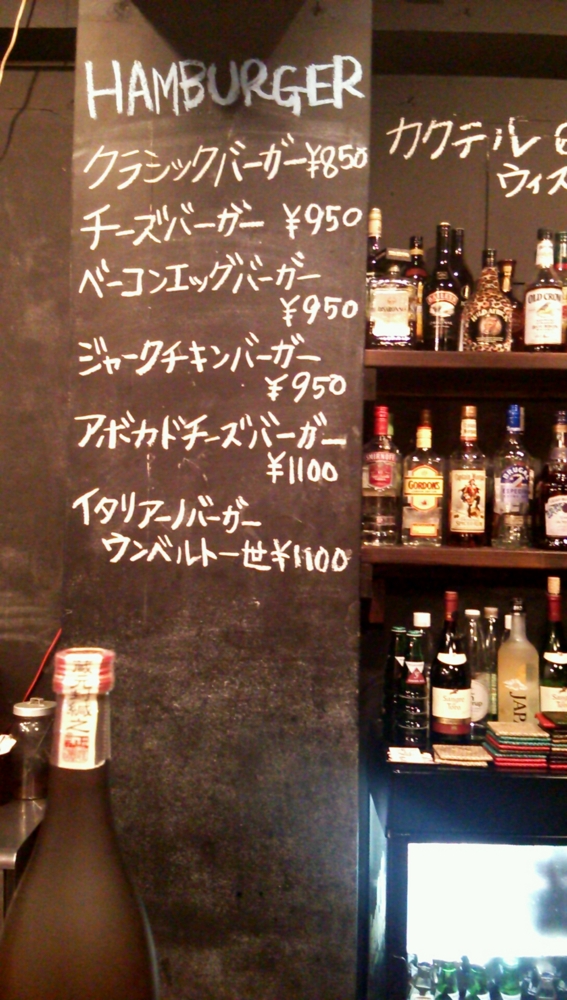 HAMBURGER
クラシックバーガー¥850
チーズバーガー ¥950
ベーコンエッグバーガー
¥950
ジャークチキンバーガー
¥950
アボカドチーズバーガー
¥1100
イタリアーノバーガー
ウンベルト一世¥1100
カクテル
ウィス
BAILEYS
OLD CROW
SMIRNOFF
GORDON'S
JAP